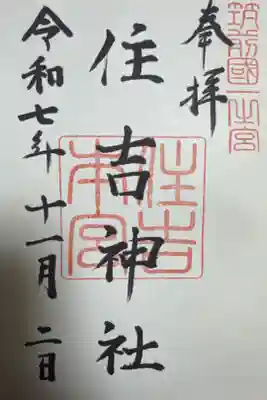 筑前國一之宮
奉拝
住吉神社
住吉本宮
令和七年十一月二日